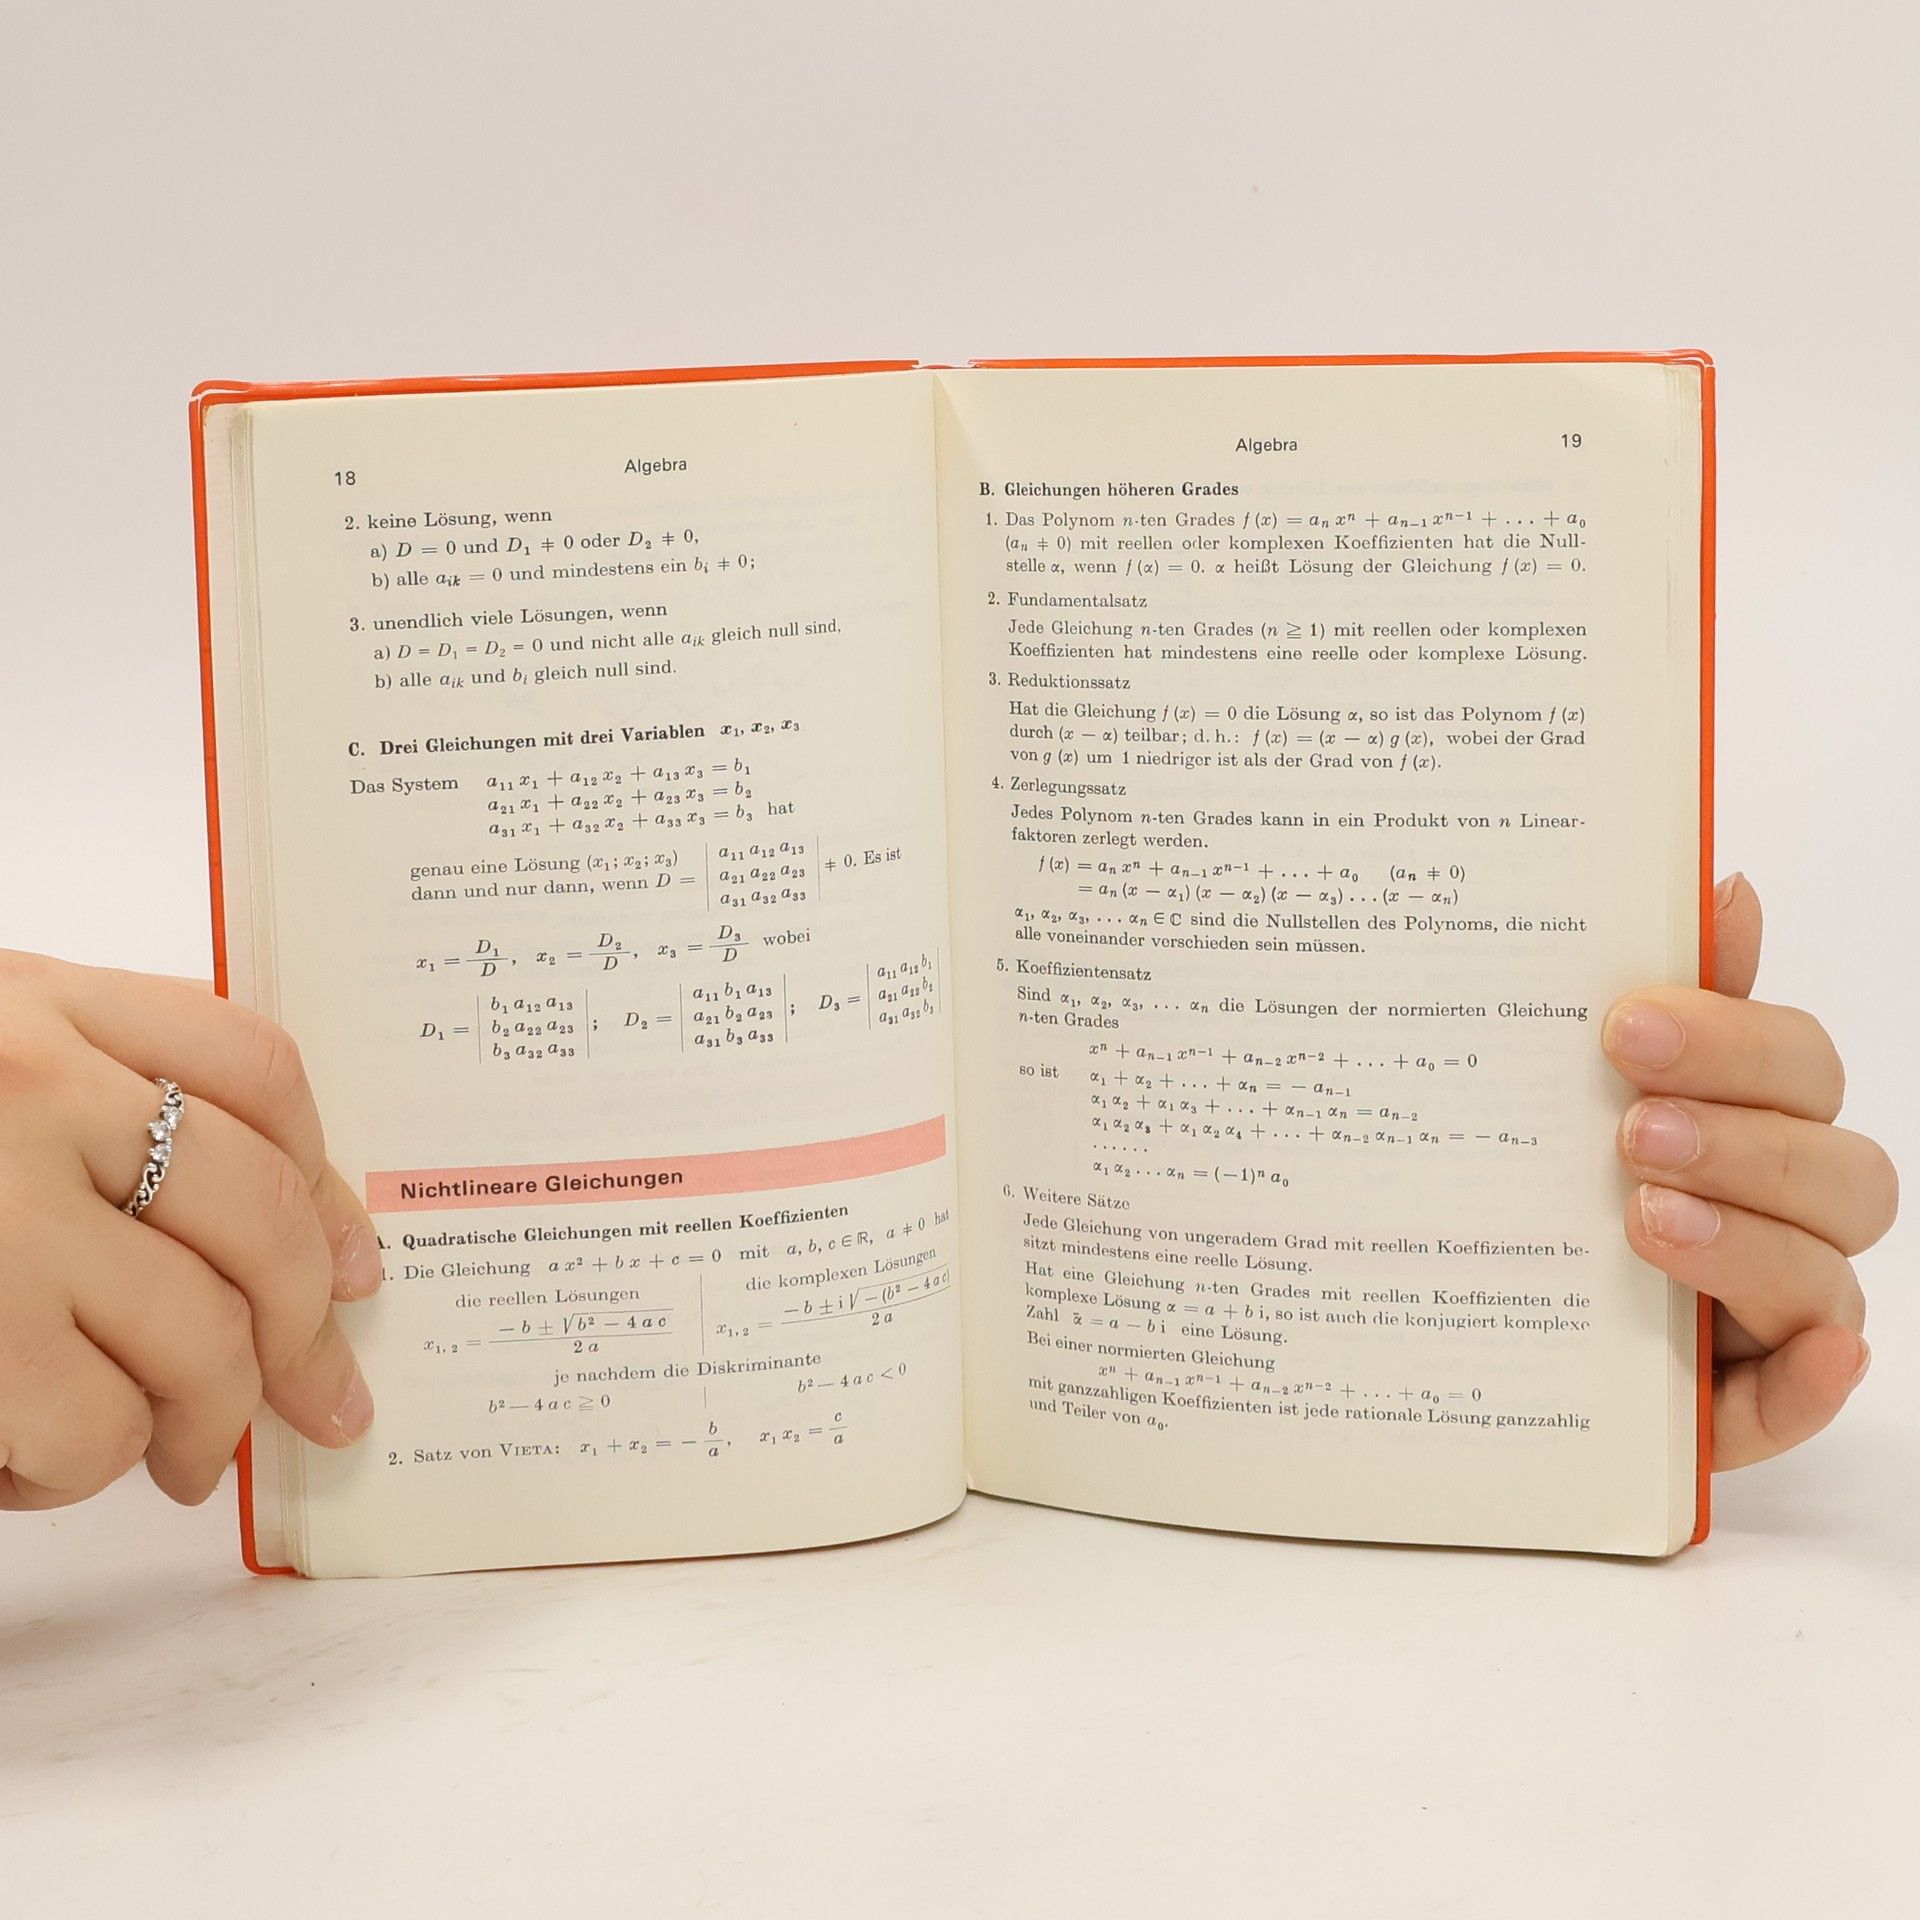 18
Algebra
2. keine Lösung, wenn
a) D = 0 und D₁ ≠ 0 oder D₂ ≠ 0,
b) alle aᵢₖ = 0 und mindestens ein bᵢ ≠ 0;
3. unendlich viele Lösungen, wenn
a) D = D₁ = D₂ = 0 und nicht alle aᵢₖ gleich null sind,
b) alle aᵢₖ und bᵢ gleich null sind.
C. Drei Gleichungen mit drei Variablen x₁, x₂, x₃
Das System a₁₁ x₁ + a₁₂ x₂ + a₁₃ x₃ = b₁
a₂₁ x₁ + a₂₂ x₂ + a₂₃ x₃ = b₂
a₃₁ x₁ + a₃₂ x₂ + a₃₃ x₃ = b₃ hat
genau eine Lösung (x₁; x₂; x₃)
dann und nur dann, wenn D = | a₁₁ a₁₂ a₁₃ |
| a₂₁ a₂₂ a₂₃ | ≠ 0. Es ist
| a₃₁ a₃₂ a₃₃ |
x₁ = D₁/D, x₂ = D₂/D, x₃ = D₃/D wobei
D₁ = | b₁ a₁₂ a₁₃ | ; D₂ = | a₁₁ b₁ a₁₃ | ; D₃ = | a₁₁ a₁₂ b₁ |
| b₂ a₂₂ a₂₃ | | a₂₁ b₂ a₂₃ | | a₂₁ a₂₂ b₂ |
| b₃ a₃₂ a₃₃ | | a₃₁ b₃ a₃₃ | | a₃₁ a₃₂ b₃ |
Nichtlineare Gleichungen
A. Quadratische Gleichungen mit reellen Koeffizienten
1. Die Gleichung a x² + b x + c = 0 mit a, b, c ∈ ℝ, a ≠ 0 hat
die reellen Lösungen | die komplexen Lösungen
x₁,₂ = (− b ± √(b² − 4 a c)) / 2 a | x₁,₂ = (− b ± i √(− (b² − 4 a c))) / 2 a
je nachdem die Diskriminante
b² — 4 a c ≧ 0 | b² — 4 a c < 0
2. Satz von VIETA: x₁ + x₂ = − b/a, x₁ x₂ = c/a
Algebra
19
B. Gleichungen höheren Grades
1. Das Polynom n-ten Grades f (x) = aₙ xⁿ + aₙ₋₁ xⁿ⁻¹ + . . . + a₀
(aₙ ≠ 0) mit reellen oder komplexen Koeffizienten hat die Null-
stelle α, wenn f (α) = 0. α heißt Lösung der Gleichung f (x) = 0.
2. Fundamentalsatz
Jede Gleichung n-ten Grades (n ≧ 1) mit reellen oder komplexen
Koeffizienten hat mindestens eine reelle oder komplexe Lösung.
3. Reduktionssatz
Hat die Gleichung f (x) = 0 die Lösung α, so ist das Polynom f (x)
durch (x − α) teilbar; d. h.: f (x) = (x − α) g (x), wobei der Grad
von g (x) um 1 niedriger ist als der Grad von f (x).
4. Zerlegungssatz
Jedes Polynom n-ten Grades kann in ein Produkt von n Linear-
faktoren zerlegt werden.
f (x) = aₙ xⁿ + aₙ₋₁ xⁿ⁻¹ + . . . + a₀ (aₙ ≠ 0)
= aₙ (x − α₁) (x − α₂) (x − α₃) . . . (x − αₙ)
α₁, α₂, α₃, . . . αₙ ∈ ℂ sind die Nullstellen des Polynoms, die nicht
alle voneinander verschieden sein müssen.
5. Koeffizientensatz
Sind α₁, α₂, α₃, . . . αₙ die Lösungen der normierten Gleichung
n-ten Grades
xⁿ + aₙ₋₁ xⁿ⁻¹ + aₙ₋₂ xⁿ⁻² + . . . + a₀ = 0
so ist α₁ + α₂ + . . . + αₙ = − aₙ₋₁
α₁ α₂ + α₁ α₃ + . . . + αₙ₋₁ αₙ = aₙ₋₂
α₁ α₂ α₃ + α₁ α₂ α₄ + . . . + αₙ₋₂ αₙ₋₁ αₙ = − aₙ₋₃
. . . . . .
α₁ α₂ . . . αₙ = (−1)ⁿ a₀
6. Weitere Sätze
Jede Gleichung von ungeradem Grad mit reellen Koeffizienten be-
sitzt mindestens eine reelle Lösung.
Hat eine Gleichung n-ten Grades mit reellen Koeffizienten die
komplexe Lösung α = a + b i, so ist auch die konjugiert komplexe
Zahl ᾱ = a − b i eine Lösung.
Bei einer normierten Gleichung
xⁿ + aₙ₋₁ xⁿ⁻¹ + aₙ₋₂ xⁿ⁻² + . . . + a₀ = 0
mit ganzzahligen Koeffizienten ist jede rationale Lösung ganzzahlig
und Teiler von a₀.